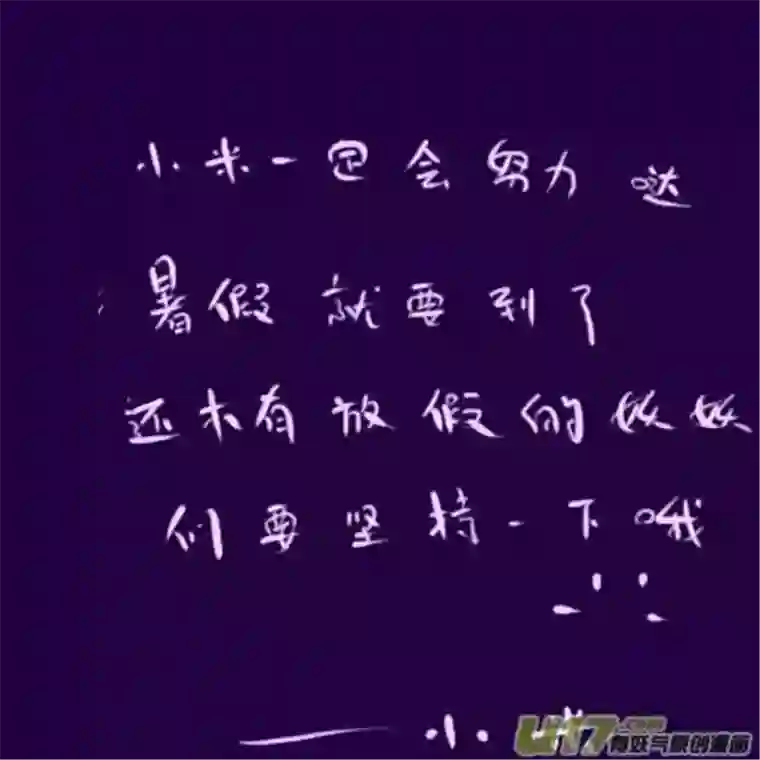 小米一定会努力哒
暑假就要到了
还木有放假的妖妖
们要坚持一下哦
——小米
U17.com
有妖气原创漫画